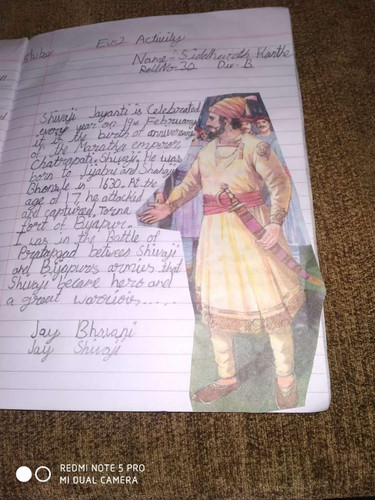 shibu
Evs2 Activity
Name - Siddharth Kanthe
Roll No. 30 Div - B
Shivaji Jayanti is Celebrated
every year on 19th February
it is the birth of anniversary
of the Maratha emperor
Chatrapati Shivaji. He was
born to Jijabai and Shahaji
Bhonsle in 1630. At the
age of 17, he attacked
and captured Torna
fort of Bijapur.
I was in the Battle of
Pratapgad between Shivaji
and Bijapur's armies that
Shivaji became hero and
a great warriors.....
Jay Bhavani
Jay Shivaji
REDMI NOTE 5 PRO
MI DUAL CAMERA